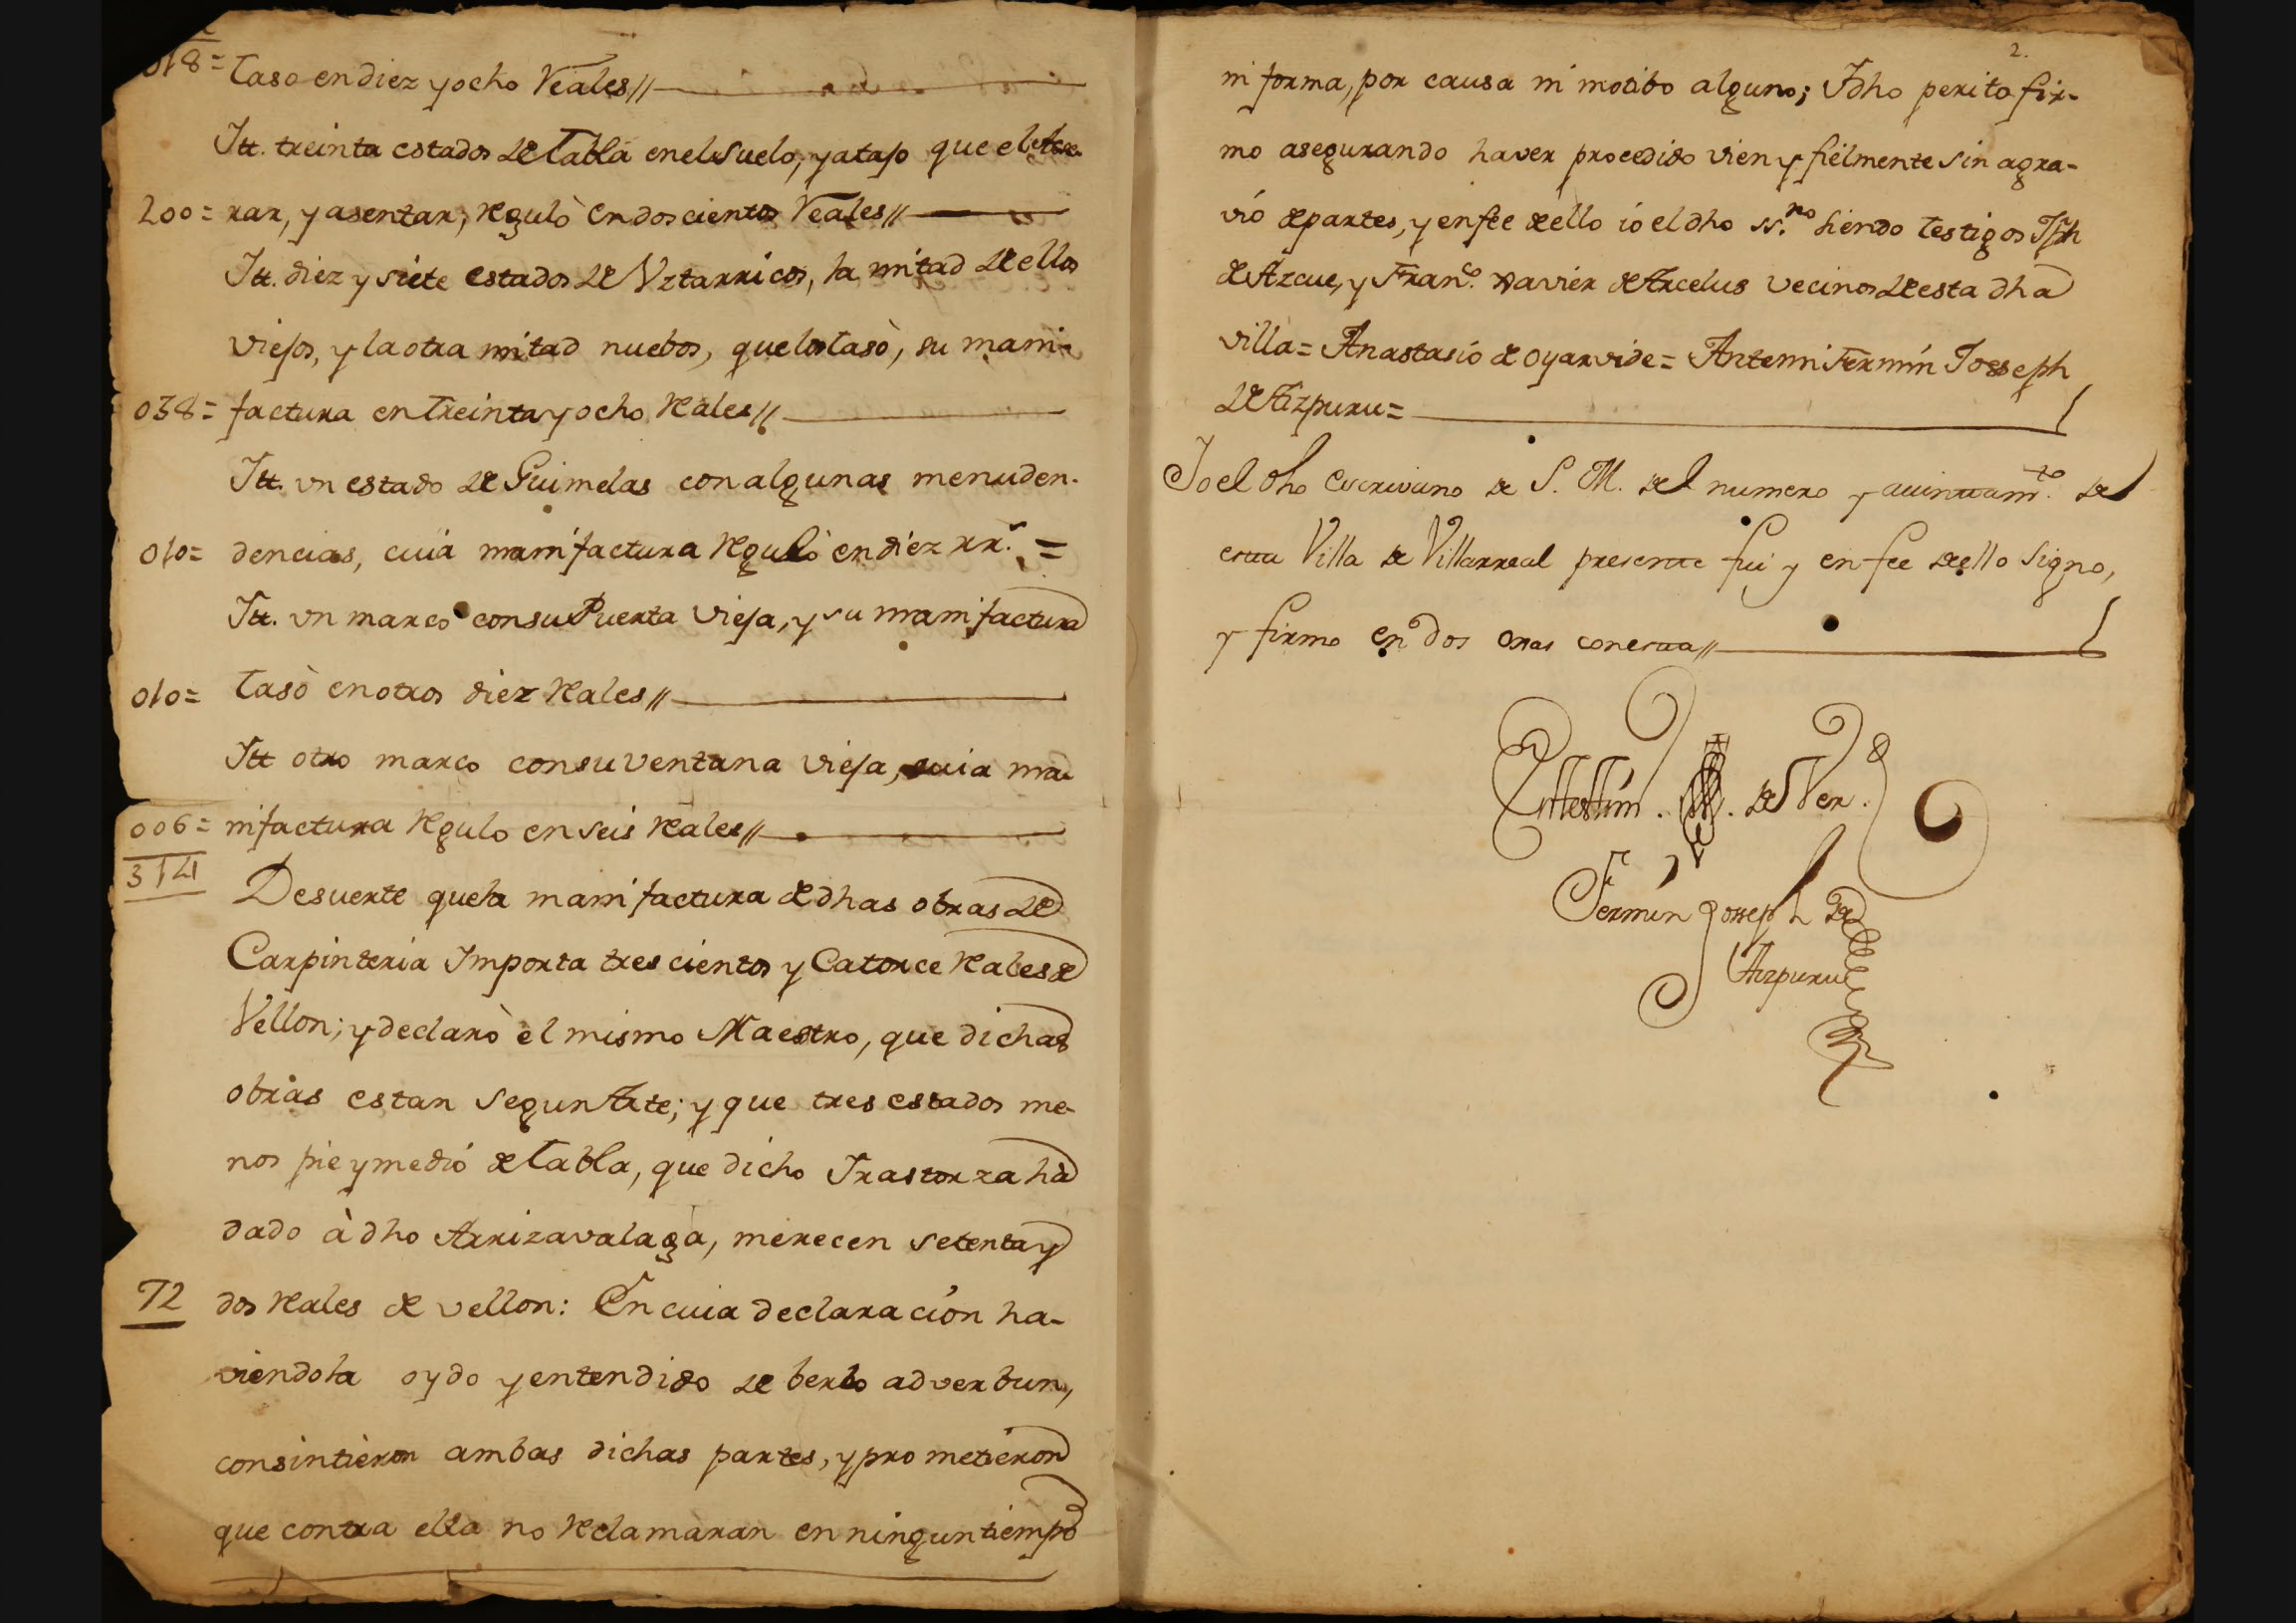 018= Taso en diez y ocho Reales//
Itt. treinta estados de Tabla enel suelo, y atajo que el
200= rar, y asentar, regulò en doscientos Reales//
Itt. diez y siete estados de Vztarricos, la mitad de ellos
viejos, y la otra mitad nuebos, que los tasò, su mani-
038= factura en treinta y ocho Reales//
Itt. vn estado de Guimelas con algunas menuden-
010= dencias, cuia manifactura regulò en diez rr.s =
Itt. vn marco con su Puerta vieja, y su manifactura
010= Tasò en otros diez Reales//
Itt otro marco con su ventana vieja, cuia ma
006= nifactura regulo en seis Reales//
314
De suerte que la manifactura de dhas obras de
Carpinteria Importa trescientos y Catorce Reales de
Vellon; y declarò el mismo Maestro, que dichas
obras estan segun Arte; y que tres estados me-
nos pie y medio de Tabla, que dicho Irastorza hà
dado à dho Arrizavalaga, merecen setenta y
72 dos Reales de vellon: En cuia declaracion ha-
viendola oydo y entendido de berbo adverbun,
consintieron ambas dichas partes, y prometieron
que contra ella no reclamaran en ningun tiempo
2.
ni forma, por causa ni motibo alguno; I dho perito fir-
mo asegurando haver procedido vien y fielmente sin agra-
vio de partes, y en fee de ello io el dho ss.no siendo testigos Jph
de Azcue, y Fran.co Xavier de Arcelus vecinos de esta dha
villa= Anastasio de Oyarvide= Antemi Fermin Josseph
de Aizpuru=
Io el dho Escrivano de S. M. del numero y aiuntam.to de
esta Villa de Villarreal presente fui y en fee de ello signo,
y firmo en dos oxas con esta//
En testim.o de Ver.
Fermin Josseph de
Aizpuru